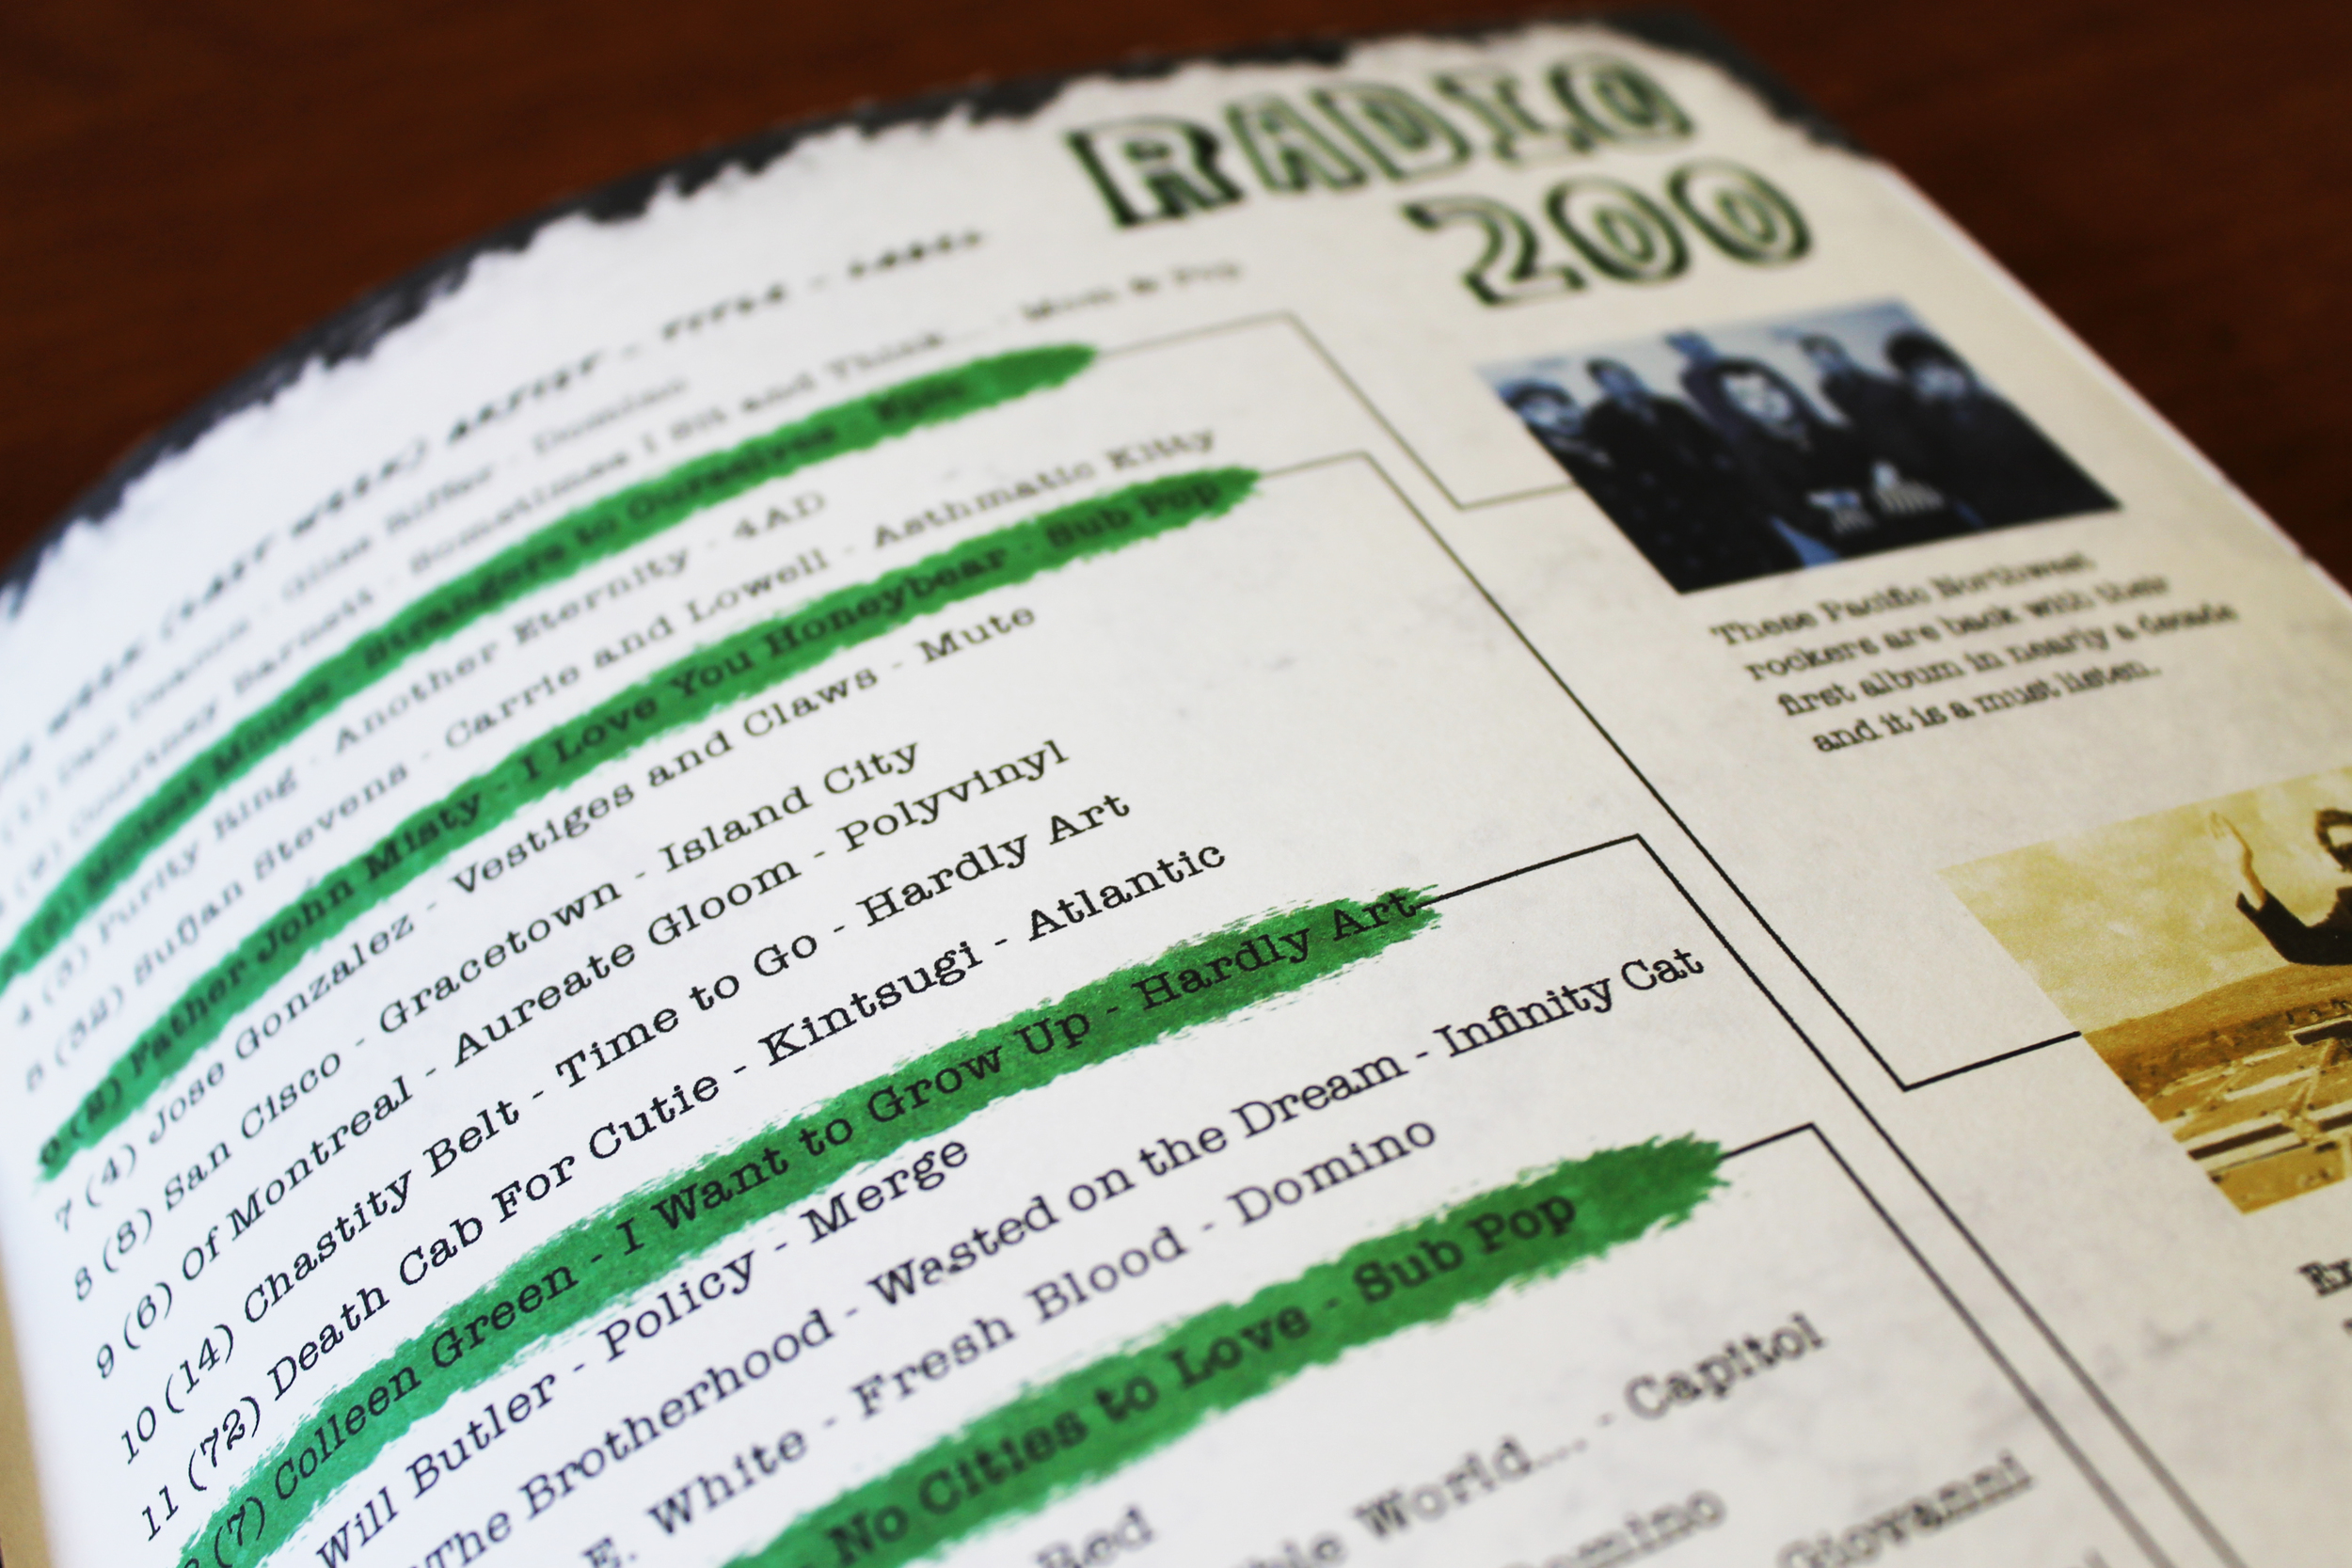 RADIO
200
WEEK (LAST WEEK) ARTIST - TITLE - LABEL
Glass Riffer - Domino
Courtney Barnett - Sometimes I Sit and Think... - Mom & Pop
Modest Mouse - Strangers to Ourselves - Epic
4 (3) Purity Ring - Another Eternity - 4AD
5 (32) Sufjan Stevens - Carrie and Lowell - Asthmatic Kitty
(2) Father John Misty - I Love You Honeybear - Sub Pop
7 (4) Jose Gonzalez - Vestiges and Claws - Mute
8 (8) San Cisco - Gracetown - Island City
9 (6) Of Montreal - Aureate Gloom - Polyvinyl
10 (14) Chastity Belt - Time to Go - Hardly Art
11 (72) Death Cab For Cutie - Kintsugi - Atlantic
(7) Colleen Green - I Want to Grow Up - Hardly Art
Will Butler - Policy - Merge
The Brotherhood - Wasted on the Dream - Infinity Cat
E. White - Fresh Blood - Domino
No Cities to Love - Sub Pop
World... - Capitol
Domino
Giovanni
These Pacific Northwest
rockers are back with their
first album in nearly a decade
and it is a must listen.